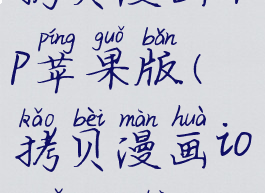 píng guǒ bǎn
P苹果版(
kǎo bèi màn huà
拷贝漫画io